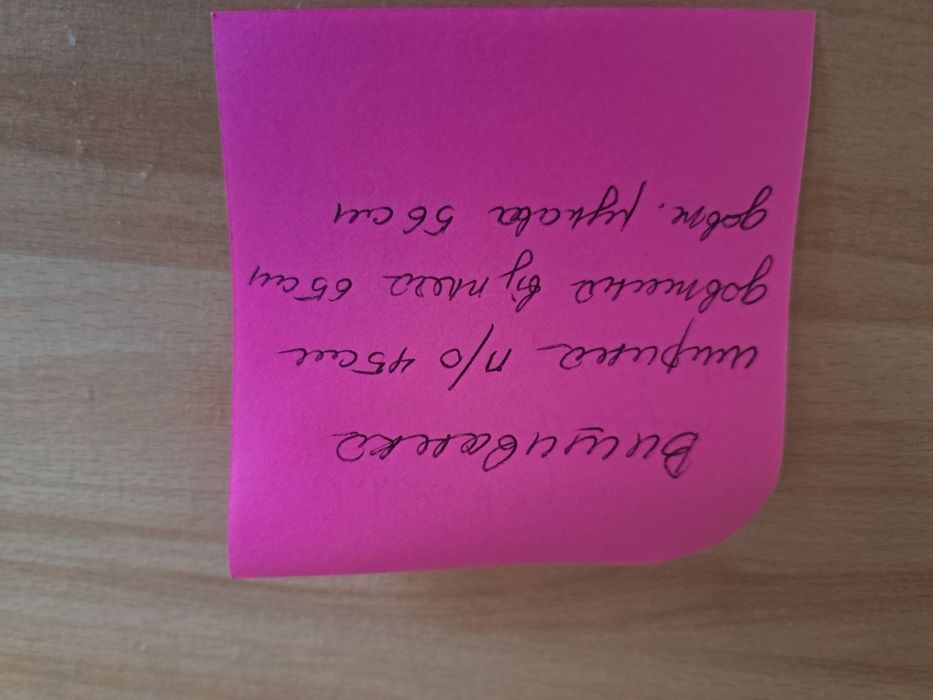 Вишиванка
ширина п/о 45см
довжина вуплеча 65см
довж. рукава 56см